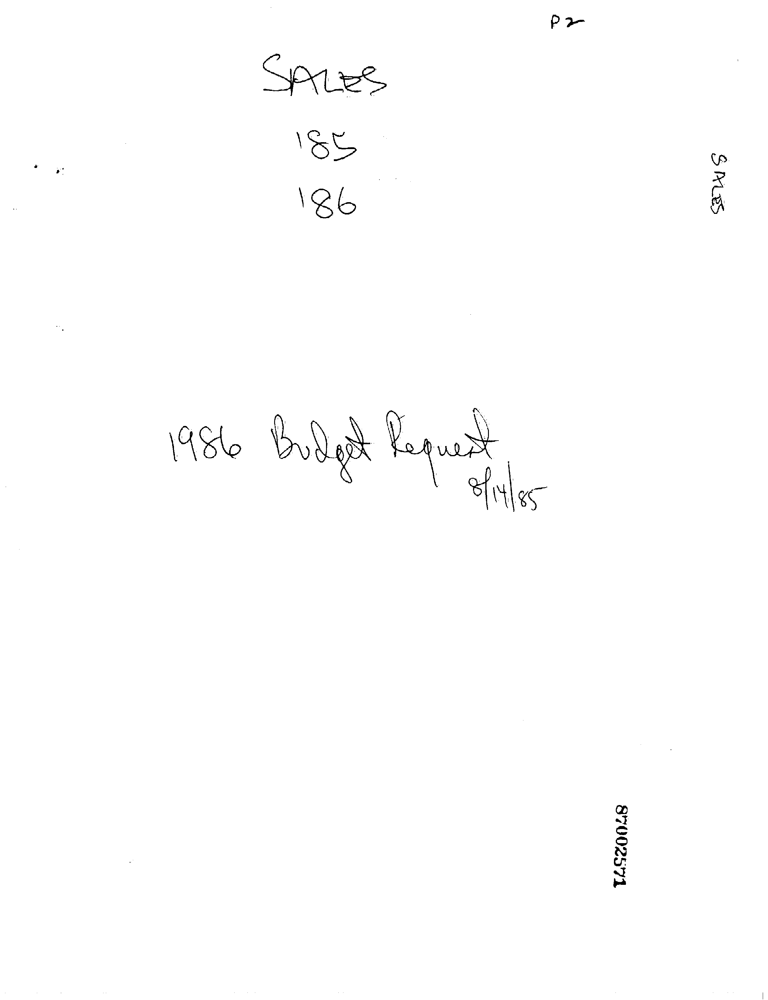 P2
SALES
'85
'86
SALES
1986 Budget Request
8/14/85
87002571